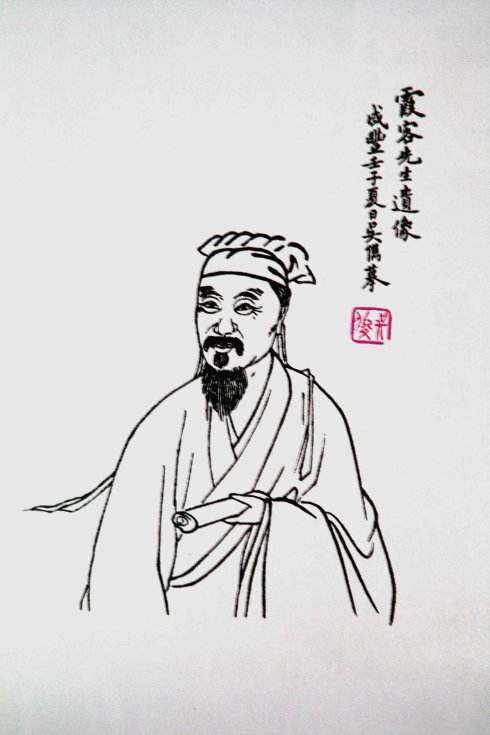 霞客先生遺像
咸豐壬子夏日吳儁摹